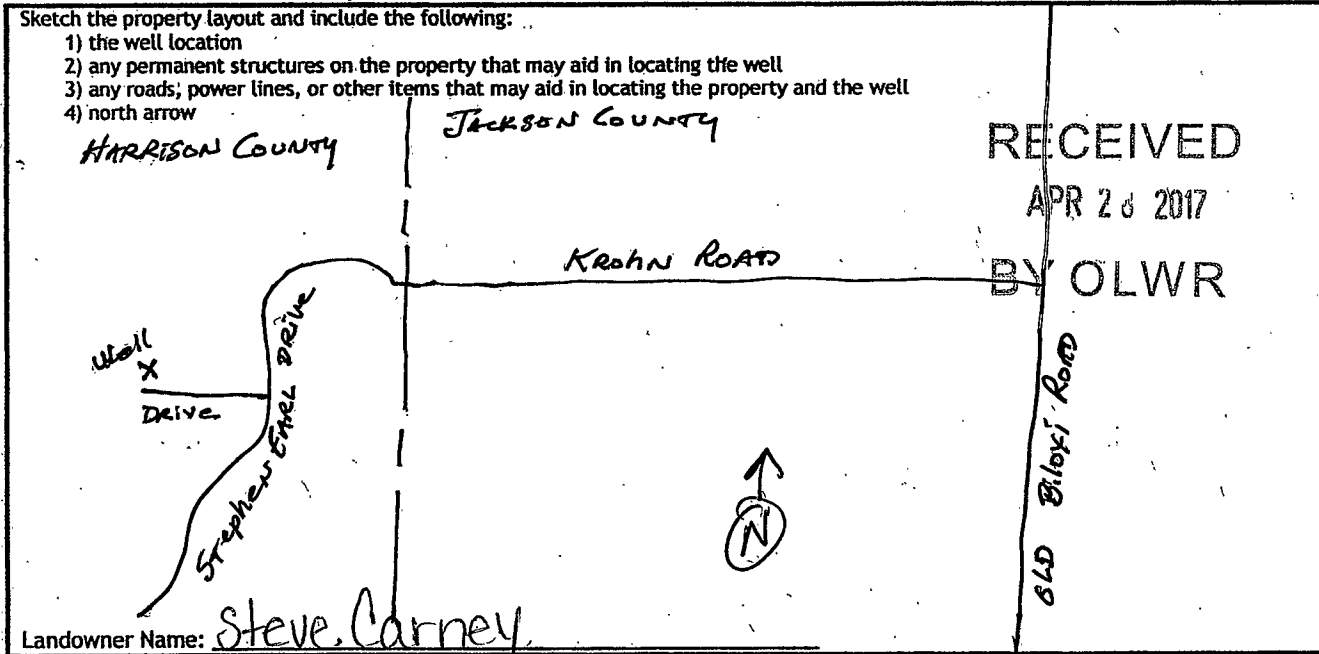 Sketch the property layout and include the following:
1) the well location
2) any permanent structures on the property that may aid in locating the well
3) any roads, power lines, or other items that may aid in locating the property and the well
4) north arrow
HARRISON COUNTY
JACKSON COUNTY
RECEIVED
APR 2 2017
BY OLWR
KROHN ROAD
Well
X
DRIVE
Stephen EARL DRIVE
N
OLD Biloxi ROAD
Landowner Name: Steve Carney